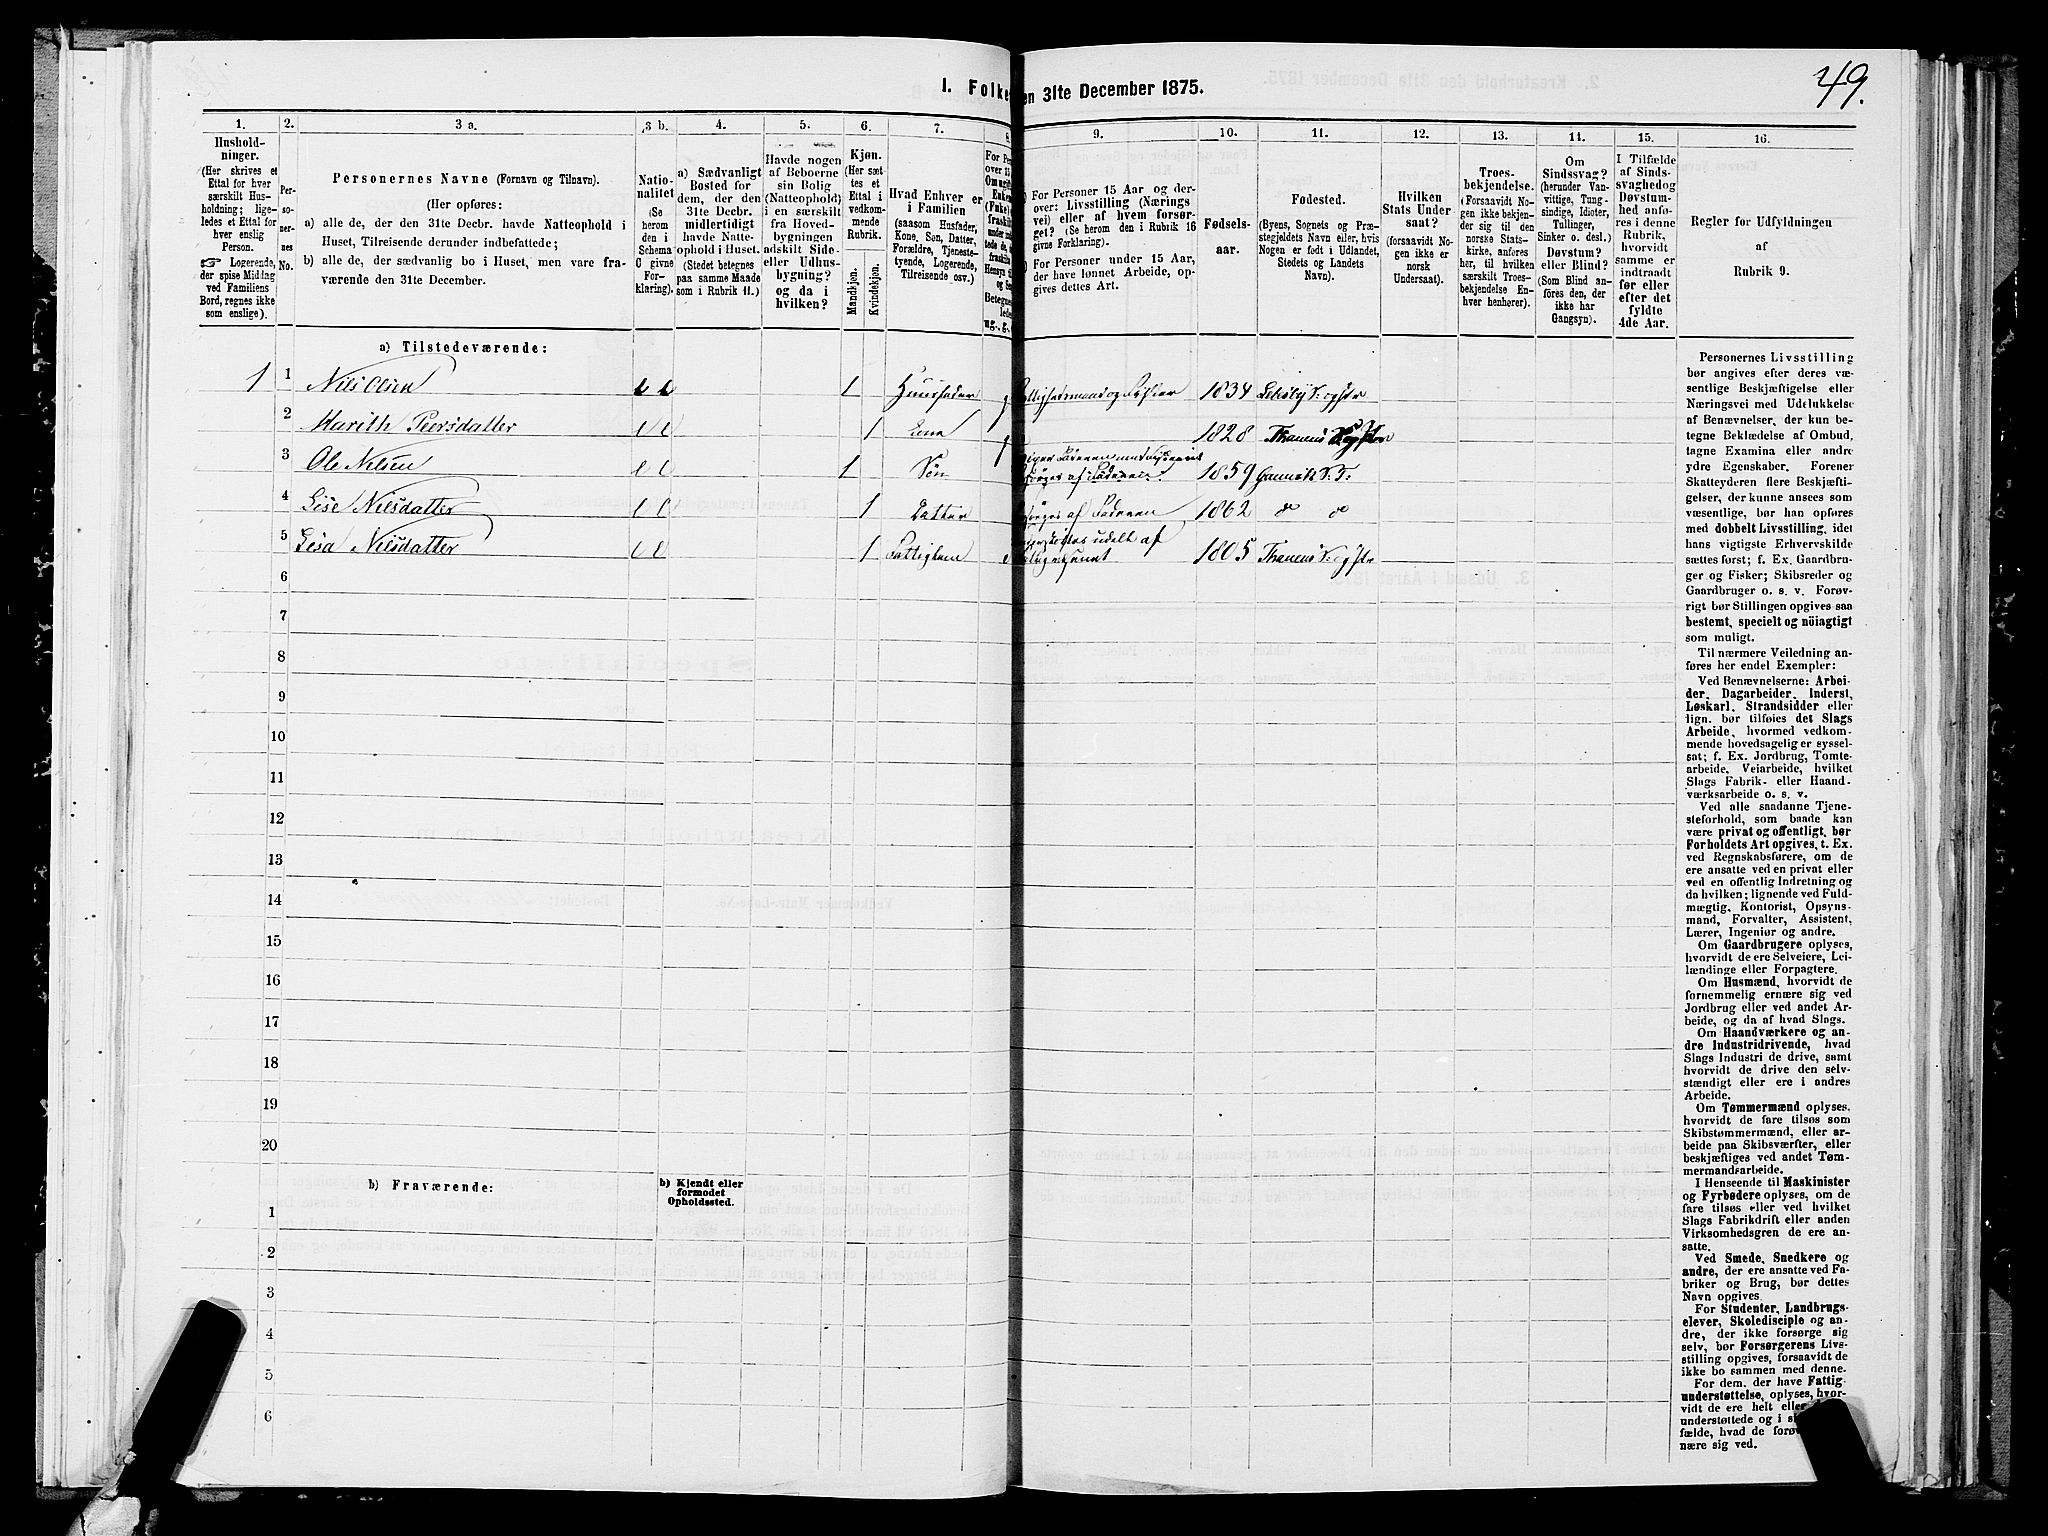 49.
I. Folke en 31te December 1875.
1. 2. 3 a. 3 b. 4. 5. 6. 7. 8. 9. 10. 11. 12. 13. 14. 15. 16.
Hushold-
ninger.
(Her skrives et
Ettal for hver
særskilt Hus-
holdning; lige-
ledes et Ettal for
hver enslig
Person.
☞ Logerende,
der spise Middag
ved Familiens
Bord, regnes ikke
som enslige).
Per-
so-
ner-
nes
No.
Personernes Navne (Fornavn og Tilnavn).
(Her opføres:
a) alle de, der den 31te Decbr. havde Natteophold i
Huset, Tilreisende derunder indbefattede;
b) alle de, der sædvanlig bo i Huset, men vare fra-
værende den 31te December.
Natio-
nalitet
(Se
herom
den i
Schema
C givne
For-
klaring).
a) Sædvanligt
Bosted for
dem, der den
31te Decbr.
midlertidigt
havde Natte-
ophold i Huset.
(Stedet betegnes
paa samme Maade
som i Rubrik 11.)
Havde nogen
af Beboerne
sin Bolig
(Natteophold)
i en særskilt
fra Hoved-
bygningen
adskilt Side-
eller Udhus-
bygning?
og da i
hvilken?
Kjøn.
(Her sæt-
tes et
Ettal i
vedkom-
mende
Rubrik.
Mandkjøn.
Kvindekjøn.
Hvad Enhver er
i Familien
(saasom Husfader,
Kone, Søn, Datter,
Forældre, Tjeneste-
tyende, Logerende,
Tilreisende osv.)
For Personer 15 Aar og der-
over: Livsstilling (Nærings
vei) eller af hvem forsør-
get? (Se herom den i Rubrik 16
givne Forklaring).
For Personer under 15 Aar,
der have lønnet Arbeide, op-
gives dettes Art.
Fødsels-
aar.
Fødested.
(Byens, Sognets og Præ-
stegjeldets Navn eller, hvis
Nogen er født i Udlandet,
Stedets og Landets
Navn).
Hvilken
Stats Under
saat?
(forsaavidt No-
gen ikke er
norsk
Undersaat).
Troes-
bekjendelse.
(Forsaavidt No-
gen ikke bekjen-
der sig til den
norske Stats-
kirke, anføres
her, til hvilken
særskilt Troes-
bekjendelse En-
hver henhører).
Om
Sindssvag?
(herunder Van-
vittige, Tung-
sindige, Idioter,
Tullinger,
Sinker o. desl.)
Døvstum?
eller Blind?
(Som Blind an-
føres den, der
ikke har
Gangsyn).
I Tilfælde
af Sinds-
svaghed og
Døvstum-
hed anfø-
res i denne
Rubrik,
hvorvidt
samme er
indtraadt
før eller
efter det
fyldte
4de Aar.
Regler for Udfyldningen
af
Rubrik 9.
a) Tilstedeværende:
1 1 Nils Olsen 1 Huusfader 1834
2 Marith Peersdatter 1 1828
3 Ole Nilsen 1 Søn 1859
4 Lise Nilsdatter 1 Datter af Faderen 1862 do do
5 Lisa Nilsdatter 1 Fattiglem udelt af 1805
6
7
8
9
10
11
12
13
14
15
16
17
18
19
20
b) Fraværende:
b) Kjendt eller
formodet
Opholdssted.
1
2
3
4
5
6
Personernes Livsstilling
bør angives efter deres væ-
sentlige Beskjæftigelse eller
Næringsvei med Udelukkelse
af Benævnelser, der kun be-
tegne Beklædelse af Ombud,
tagne Examina eller andre
ydre Egenskaber. Forener
Skatteyderen flere Beskjæfti-
gelser, der kunne ansees som
væsentlige, bør han opføres
med dobbelt Livsstilling, idet
hans vigtigste Erhvervskilde
sættes først; f. Ex. Gaardbru-
ger og Fisker; Skibsreder og
Gaardbruger o. s. v. Forøv-
rigt bør Stillingen opgives saa
bestemt, specielt og nöiagtigt
som muligt.
Til nærmere Veiledning an-
føres her endel Exempler:
Ved Benævnelserne: Arbei-
der, Dagarbeider, Inderst,
Løskarl, Strandsidder eller
lign. bør tilføies det Slags
Arbeide, hvormed vedkom-
mende hovedsagelig er syssel-
sat; f. Ex. Jordbrug, Tomte-
arbeide, Veiarbeide, hvilket
Slags Fabrik- eller Haand-
værksarbeide o. s. v.
Ved alle saadanne Tjene-
steforhold, som baade kan
være privat og offentligt, bør
Forholdets Art opgives, t. Ex.
ved Regnskabsførere, om de
ere ansatte ved en privat eller
ved en offentlig Indretning og
da hvilken; lignende ved Fuld-
mægtig, Kontorist, Opsyns-
mand, Forvalter, Assistent,
Lærer, Ingeniør og andre.
Om Gaardbrugere oplyses,
hvorvidt de ere Selveiere, Lei-
lændinge eller Forpagtere.
Om Husmænd, hvorvidt de
fornemmelig ernære sig ved
Jordbrug eller ved andet Ar-
beide, og da af hvad Slags.
Om Haandværkere og an-
dre Industridrivende, hvad
Slags Industri de drive, samt
hvorvidt de drive den selv-
stændigt eller ere i andres
Arbeide.
Om Tømmermænd oplyses,
hvorvidt de fare tilsøs som
Skibstømmermænd, eller ar-
beide paa Skibsværfter, eller
beskjæftiges ved andet Tøm-
mermandsarbeide.
I Henseende til Maskinister
og Fyrbødere oplyses, om de
fare tilsøs eller ved hvilket
Slags Fabrikdrift eller anden
Virksomhedsgren de ere an-
satte.
Ved Smede, Snedkere og
andre, der ere ansatte ved Fa-
briker og Brug, bør dettes
Navn opgives.
For Studenter, Landbrugs-
elever, Skoledisciple og an-
dre, der ikke forsørge sig
selv, bør Forsørgerens Livs-
stilling opgives, forsaavidt de
ikke bo sammen med denne.
For dem, der have Fattig-
understøttelse, oplyses, hvor-
vidt de ere helt eller
understøttede og i s
fælde, hvad de forøv
nære sig ved.